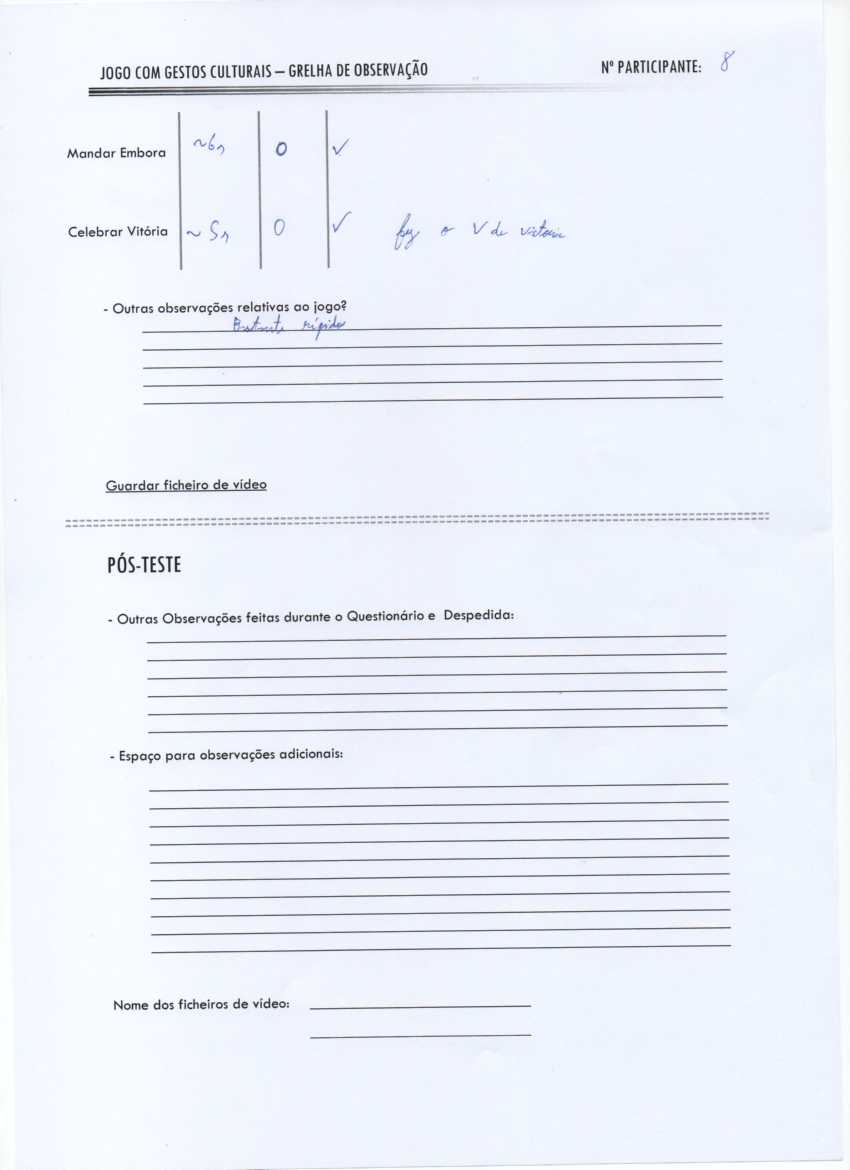 JOGO COM GESTOS CULTURAIS – GRELHA DE OBSERVAÇÃO Nº PARTICIPANTE: 8
Mandar Embora ~6s 0 ✓
Celebrar Vitória ~5s 0 ✓ fez o V de vitoria
- Outras observações relativas ao jogo?
Bastante
Guardar ficheiro de vídeo
PÓS-TESTE
- Outras Observações feitas durante o Questionário e Despedida:
- Espaço para observações adicionais:
Nome dos ficheiros de vídeo: